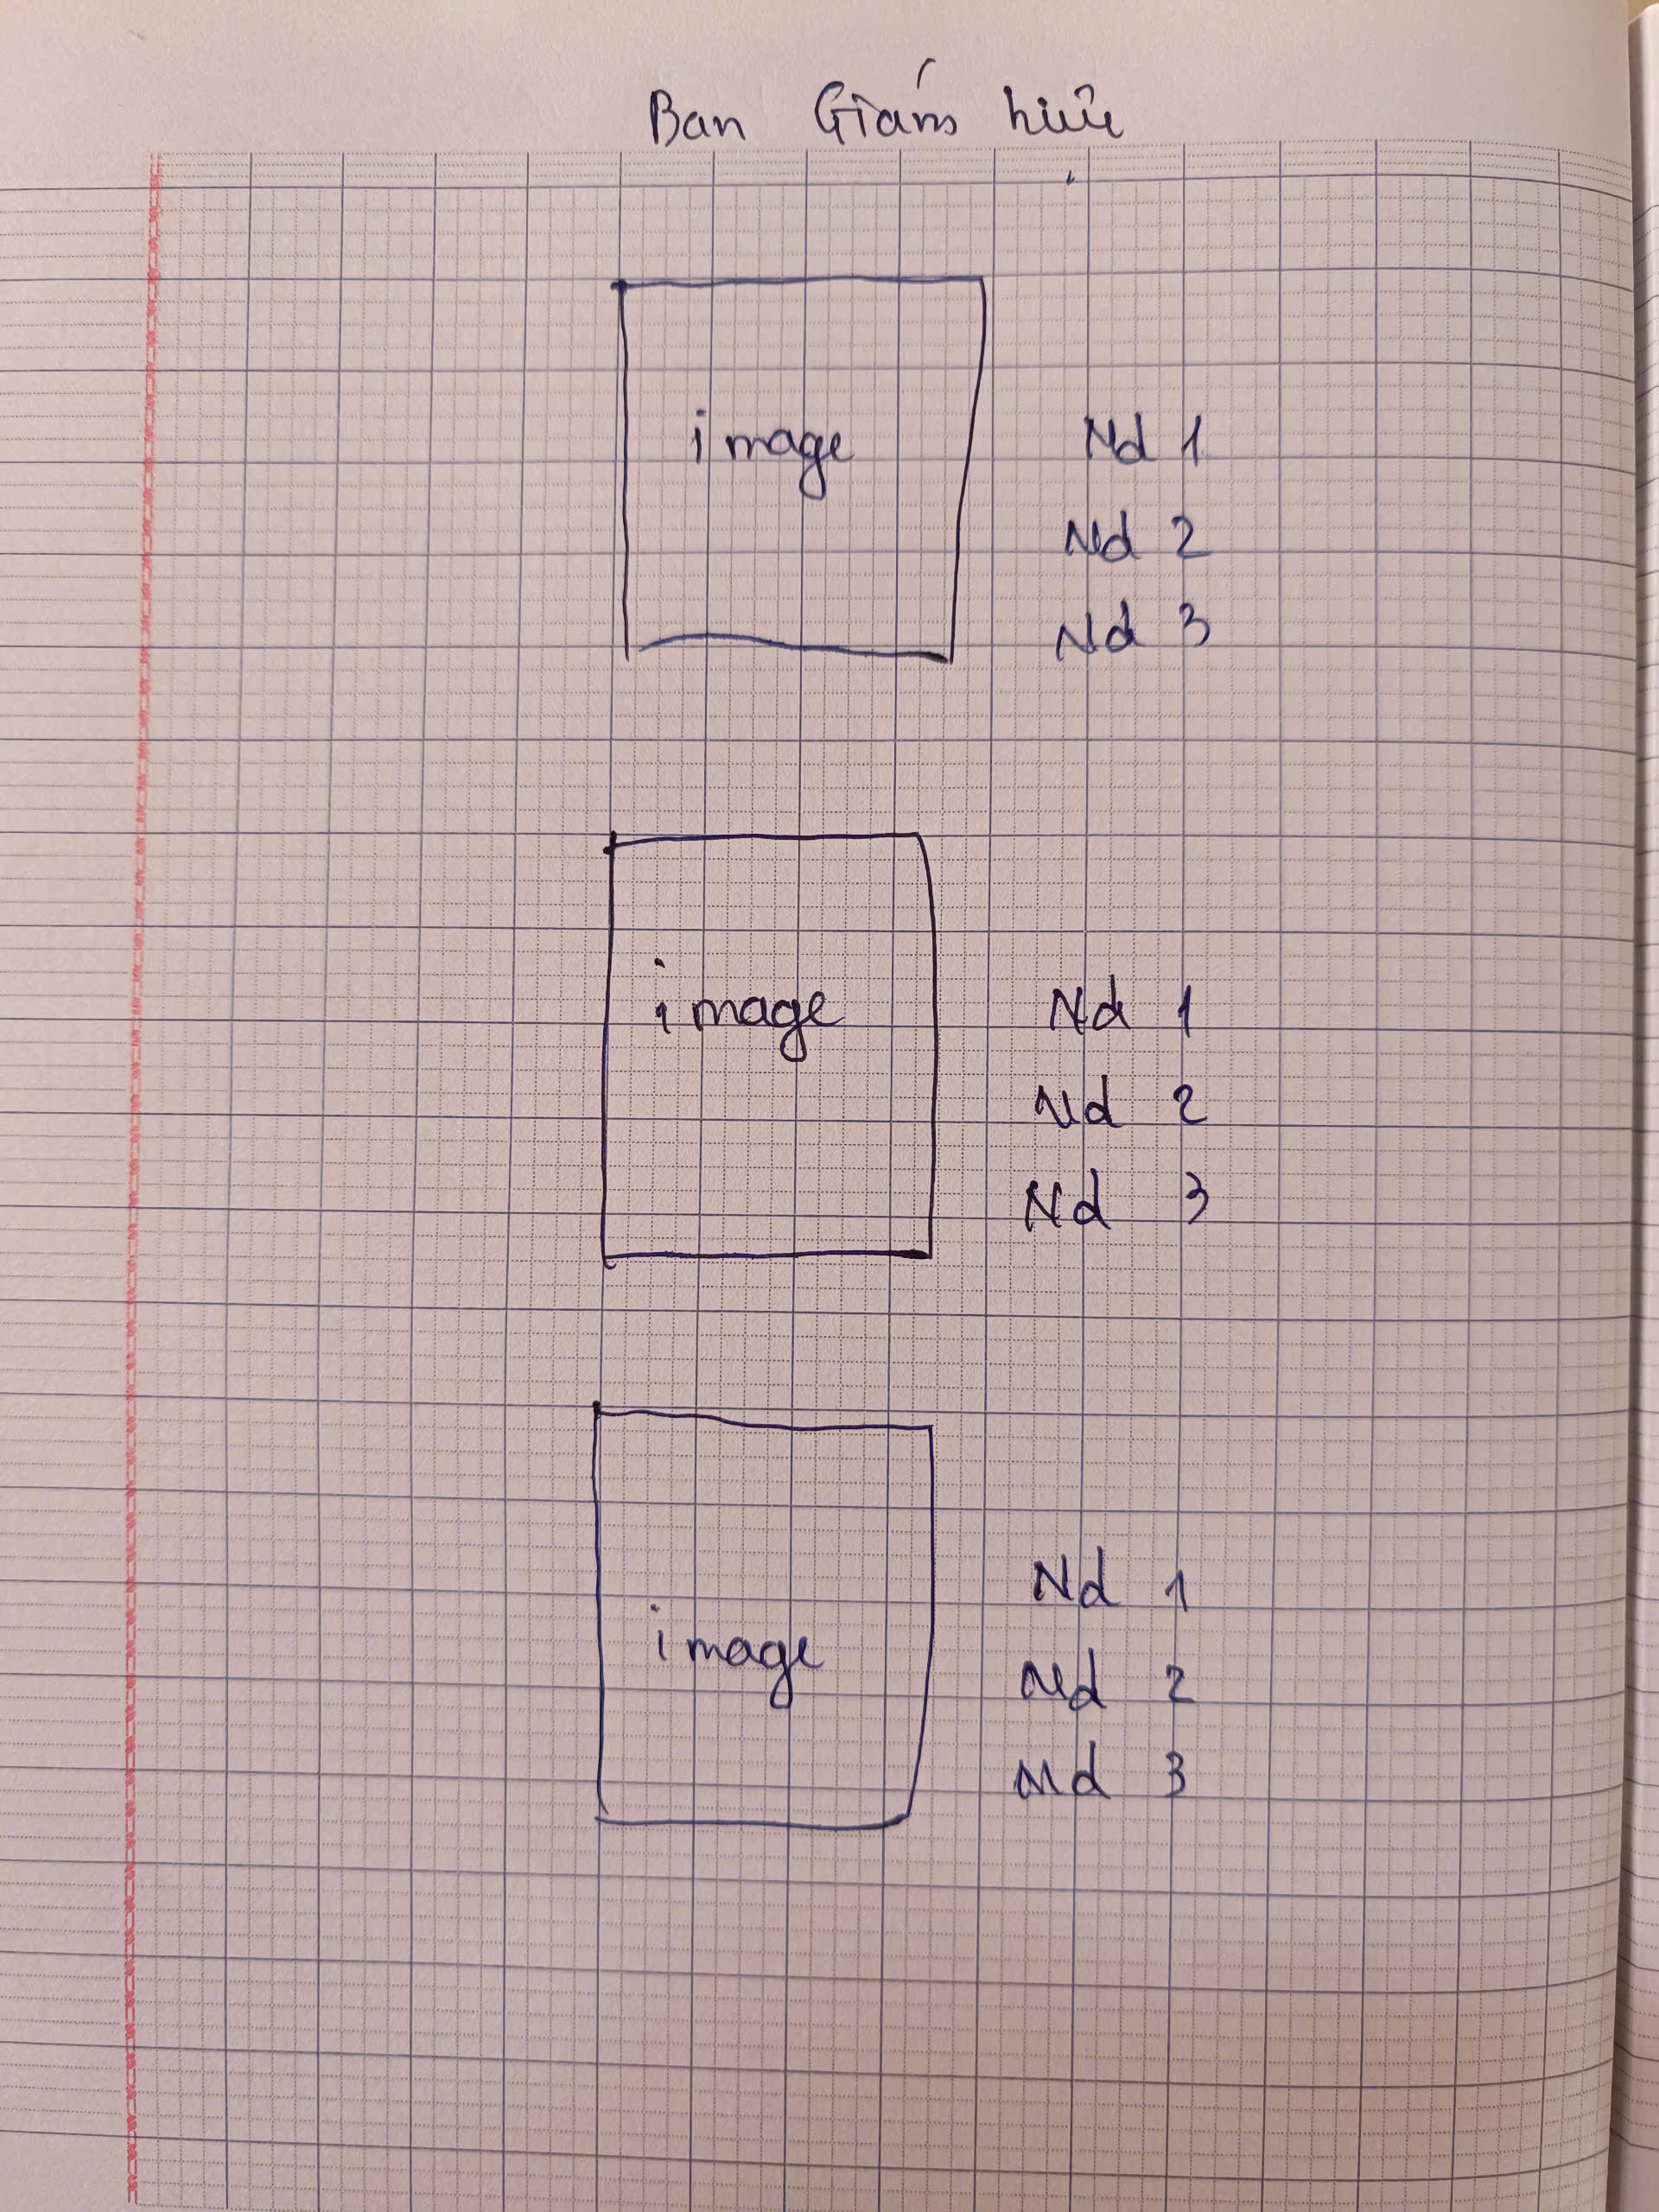 Ban Giám hiệu
image
Nd 1
Nd 2
Nd 3
image
Nd 1
Nd 2
Nd 3
image
Nd 1
Nd 2
Nd 3